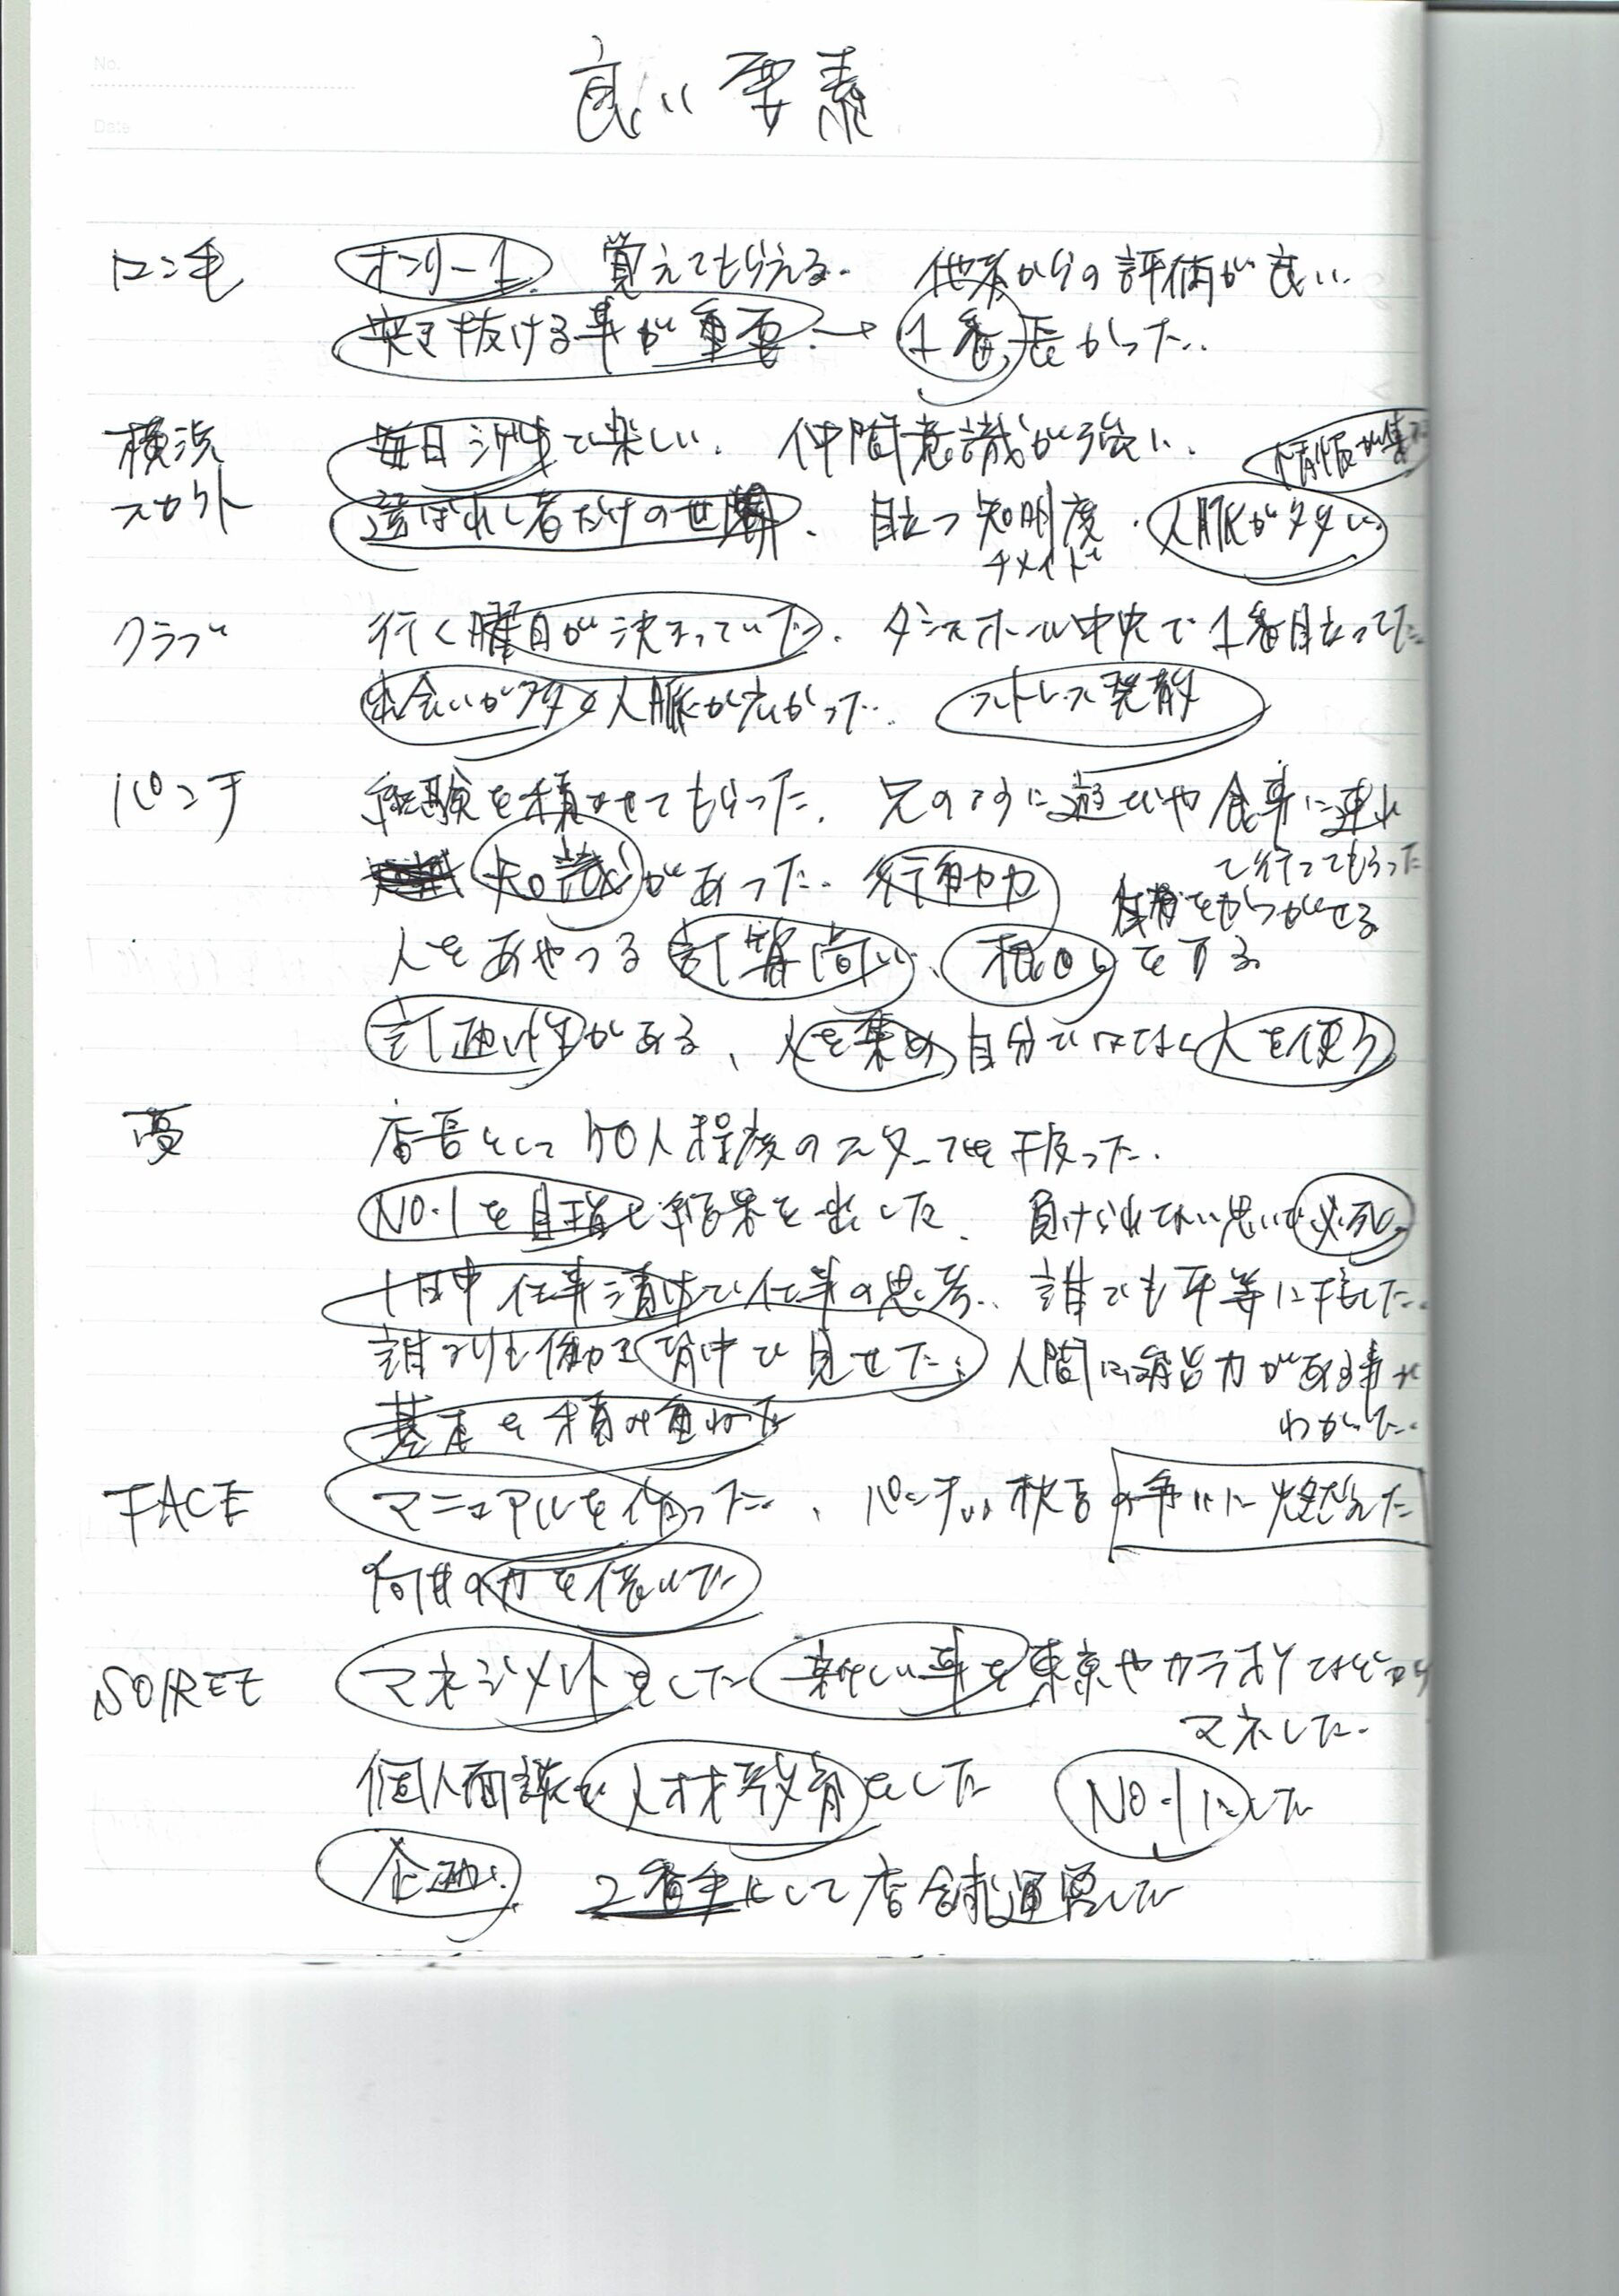 No.
Date
良い要素
ロン毛 オンリー1 覚えてもらえる. 他系からの評価が良い.
突き抜ける事が重要. → 1番長かった.
横浜 毎日 で楽しい. 仲間意識が強い. 情報が集
スカウト 選ばれし者だけの世界. 目立つ知明度. 人脈が多い.
チメイド
クラブ 行く曜日が決まっていた. ダンスホール中央で1番目立ってた
出会いが多々人脈が広がった. ストレス発散
パンチ 経験を積ませてもらった. 兄のように遊びや食事に連れ
て行ってもらった
知識があった. 行動力 をかつがせる
人をあやつる 計算高い、根回しをする
計画性がある、人を集め自分ではなく人を使う
夢 店長として 人程度のスタッフを干支った.
NO.1を目指し結果を出した. 負けられない思いで必死.
1日中仕事漬けで仕事の思考. 誰でも平等に接した.
誰よりも働き背中で見せた. 人間には能力がある事が
わかった.
基本を積み重ねた
FACE マニュアルを作った. パンチ の争いに燃えた
の力を借いた
SOIREE マネジメントをした 新しい事を東京やカラオケなどから
マネした.
個人面談を人材教育をした NO.1にした
企画. 2番手として店舗運営した